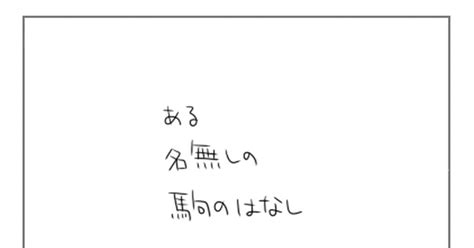 ある
名無しの
駒のはなし